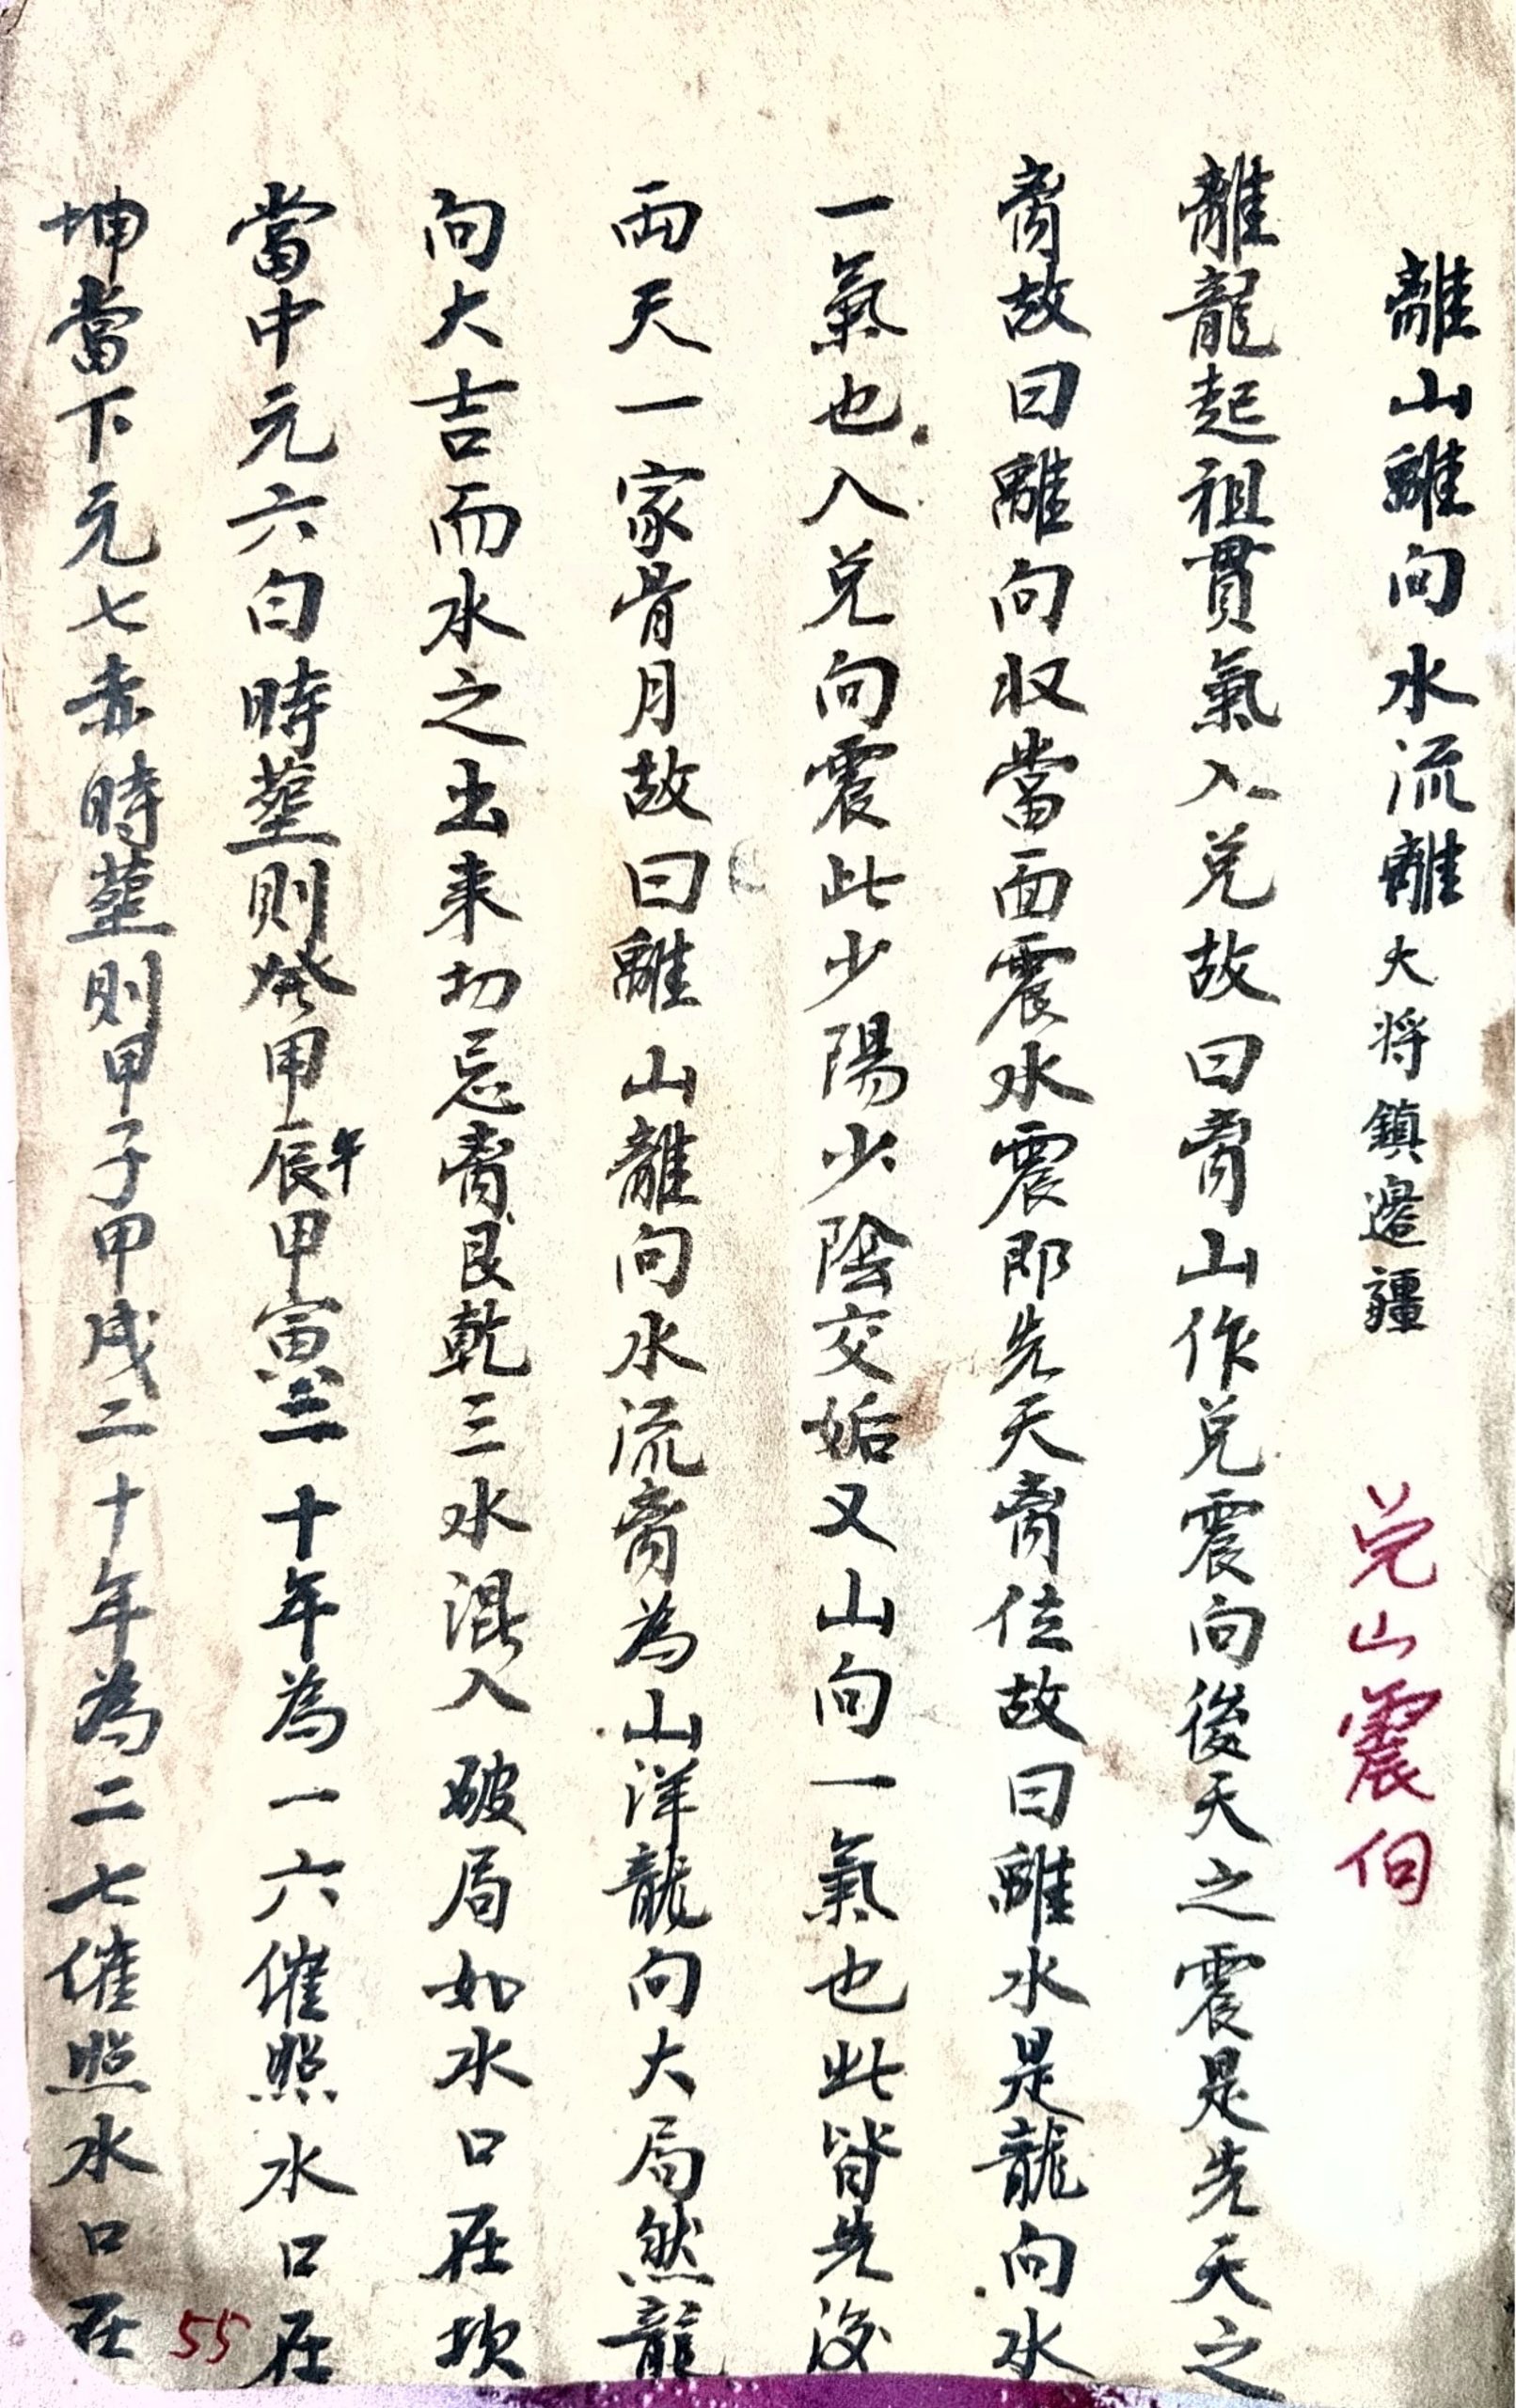 離山離向水流離 大将鎮邊疆
兑山震向
離龍起祖貫氣入兑故曰离山作兑震向後天之震是先天之
离故曰離向収當面震水震即先天离位故曰離水是龍向水
一氣也入兑向震此少陽少陰交姤又山向一氣也此皆先後
两天一家骨月故曰離山離向水流离為山洋龍向大局然龍
向大吉而水之出来切忌离艮乾三水混入破局如水口在坎
當中元六白時塟則発甲辰午甲寅三十年為一六催照水口在
坤當下元七赤時塟則甲子甲戌二十年為二七催照水口在
55